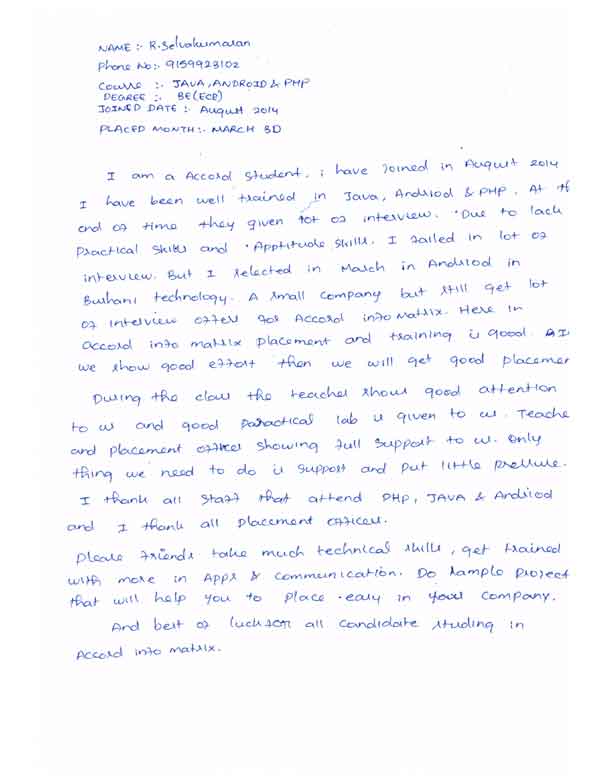 NAME :- R.Selvakumaran
Phone No:- 9159923102
Course :- JAVA, ANDROID & PHP
DEGREE :- BE(ECE)
JOINED DATE :- August 2014
PLACED MONTH:- MARCH 3D
I am a Accord Student. i have Joined in August 2014
I have been well trained in Java, Andriod & PHP. At th
end of time they given lot of interview. Due to lack
Practical skills and Apptitude skills. I failed in lot of
interview. But I selected in March in Andriod in
Burhani technology. A small company but still get lot
of interview offers for Accord info matrix. Here in
accord info matrix placement and training is good. I
we show good effort then we will get good placemen
During the class the teacher shows good attention
to us and good Paractical lab is given to us. Teache
and placement officer showing full support to us. Only
thing we need to do is support and put little pressure.
I thank all staff that attend PHP, JAVA & Andriod
and I thank all placement officers.
Please friends take much technical skills, get trained
with more in Apps & communication. Do sample project
that will help you to place easy in your company.
And best of luck for all candidate studing in
Accord info matrix.